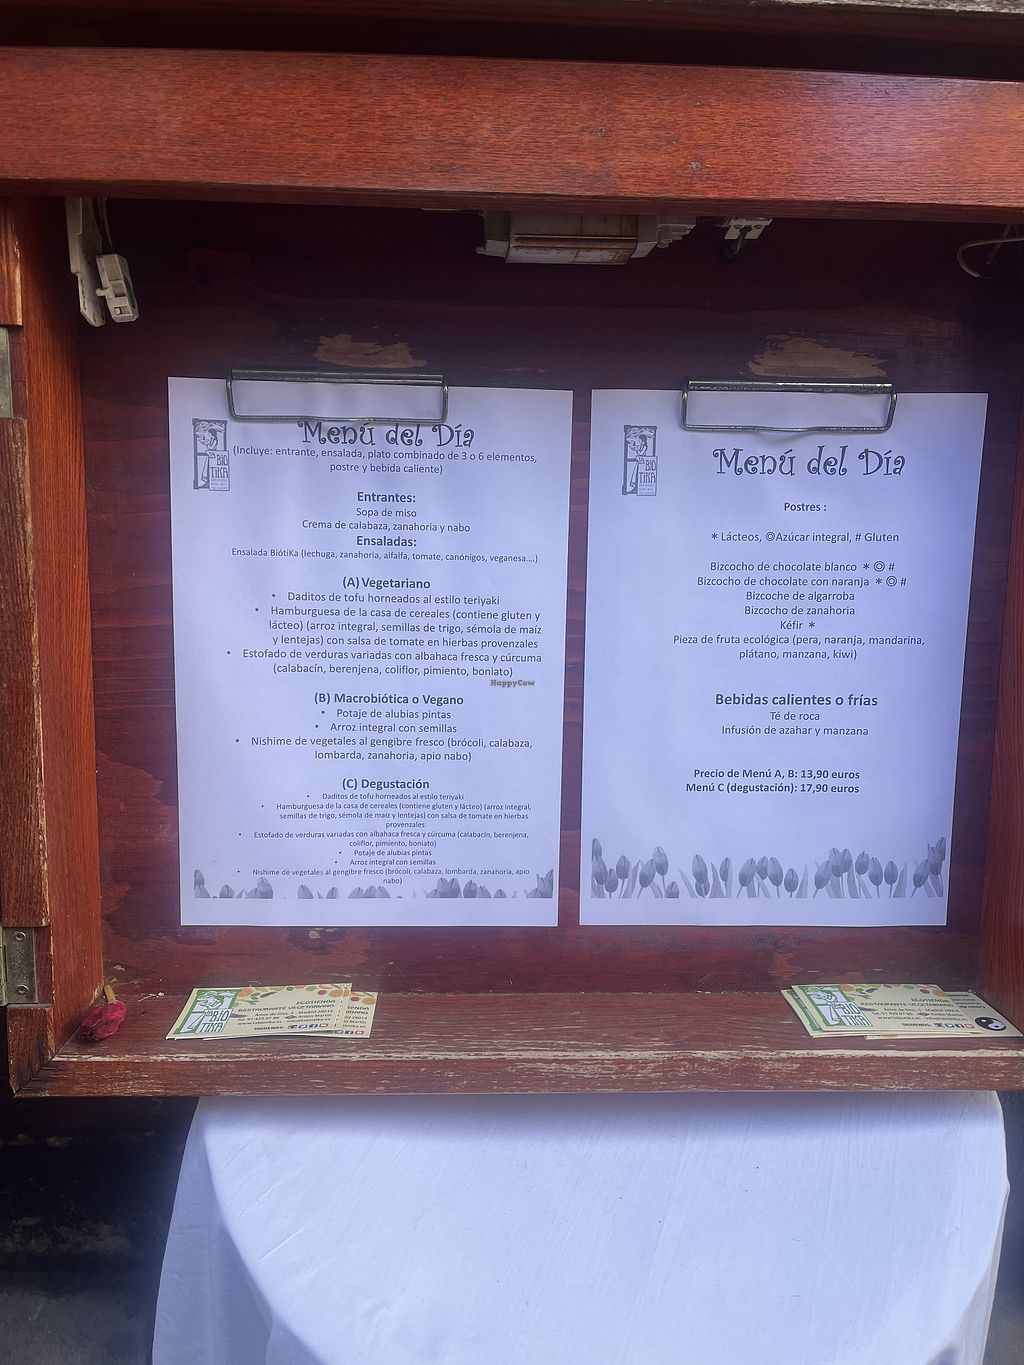 Menú del Día
(Incluye: entrante, ensalada, plato combinado de 3 o 6 elementos,
postre y bebida caliente)
LA BIO
TIKA
Entrantes:
Sopa de miso
Crema de calabaza, zanahoria y nabo
Ensaladas:
Ensalada BiótiKa (lechuga, zanahoria, alfalfa, tomate, canónigos, veganesa....)
(A) Vegetariano
• Daditos de tofu horneados al estilo teriyaki
• Hamburguesa de la casa de cereales (contiene gluten y
lácteo) (arroz integral, semillas de trigo, sémola de maíz
y lentejas) con salsa de tomate en hierbas provenzales
• Estofado de verduras variadas con albahaca fresca y cúrcuma
(calabacín, berenjena, coliflor, pimiento, boniato)
HappyCow
(B) Macrobiótica o Vegano
• Potaje de alubias pintas
• Arroz integral con semillas
• Nishime de vegetales al gengibre fresco (brócoli, calabaza,
lombarda, zanahoria, apio nabo)
(C) Degustación
• Daditos de tofu horneados al estilo teriyaki
• Hamburguesa de la casa de cereales (contiene gluten y lácteo) (arroz integral,
semillas de trigo, sémola de maíz y lentejas) con salsa de tomate en hierbas
provenzales
• Estofado de verduras variadas con albahaca fresca y cúrcuma (calabacín, berenjena,
coliflor, pimiento, boniato)
• Potaje de alubias pintas
• Arroz integral con semillas
• Nishime de vegetales al gengibre fresco (brócoli, calabaza, lombarda, zanahoria, apio
nabo)
LA BIO
TIKA
Menú del Día
Postres :
* Lácteos, ◎Azúcar integral, # Gluten
Bizcocho de chocolate blanco * ◎ #
Bizcocho de chocolate con naranja * ◎ #
Bizcoche de algarroba
Bizcocho de zanahoria
Kéfir *
Pieza de fruta ecológica (pera, naranja, mandarina,
plátano, manzana, kiwi)
Bebidas calientes o frías
Té de roca
Infusión de azahar y manzana
Precio de Menú A, B: 13,90 euros
Menú C (degustación): 17,90 euros
LA BIO
TIKA
ECOTIENDA
RESTAURANTE VEGETARIANO
Amor de Dios, 3 - Madrid 28014
Antón Martín
SÍGUENOS:
LA BIO
TIKA
ECOTIENDA
RESTAURANTE VEGETARIANO
Amor de Dios, 3 - Madrid 28014
Antón Martín
SÍGUENOS: